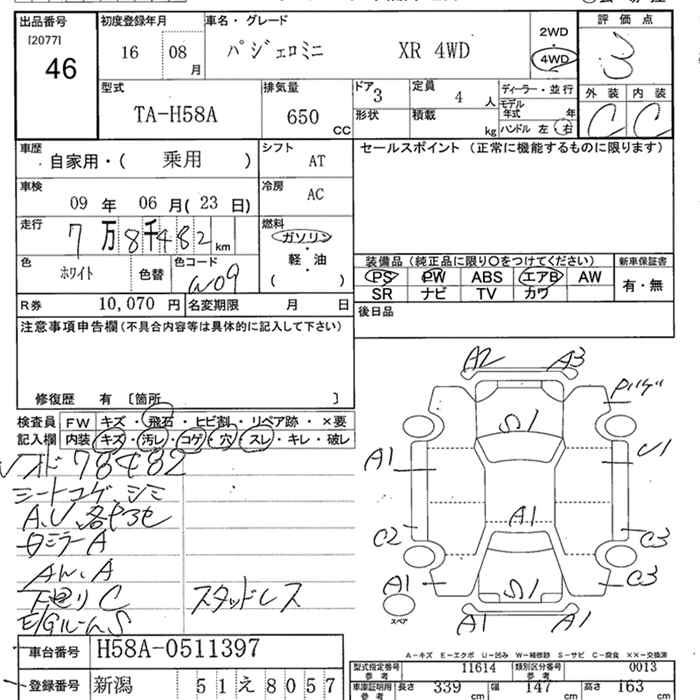 出品番号 初度登録年月 車名・グレード 評価点
[2077]
46 16 08 月 パジェロミニ XR 4WD 2WD 4WD 3
外装 内装
C C
型式 排気量 ドア 3 定員 4 人 ディーラー・並行
TA-H58A 650 CC 形状 積載 kg モデル年式 年
ハンドル 左 右
車歴 自家用・( 乗用 ) シフト AT セールスポイント(正常に機能するものに限ります)
車検 09 年 06 月(23 日) 冷房 AC
走行 7 万 8 千 4 8 2 km 燃料 ガソリン・軽・油 ( )
色 ホワイト 色替 色コード W09
装備品(純正品に限り○をつけてください) 新車保証書
PS PW ABS エアB AW 有・無
SR ナビ TV カワ
R券 10,070 円 名変期限 月 日
後日品
注意事項申告欄(不具合内容等は具体的に記入して下さい)
修復歴 有 [箇所 ]
検査員 FW キズ・飛石・ヒビ割・リペア跡・×要
記入欄 内装 キズ・汚レ・コゲ・穴・スレ・キレ・破レ
78482
シートコゲ、シミ
A.U
ミラーA
下廻りC
E/GルームS
スタッドレス
A2 A3
S1
A1 U1
A1
C2 C3
A1 S1 C3
スペア A1 A1
A-キズ E-エクボ U-凹み W-補修跡 S-サビ C-腐食 ××-交換済
車台番号 H58A-0511397
登録番号 新潟 5 1 え 8 0 5 7
型式指定番号 参考 11614 類別区分番号 参考 0013
車庫証明用 参考 長さ 339 cm 幅 147 cm 高さ 163 cm